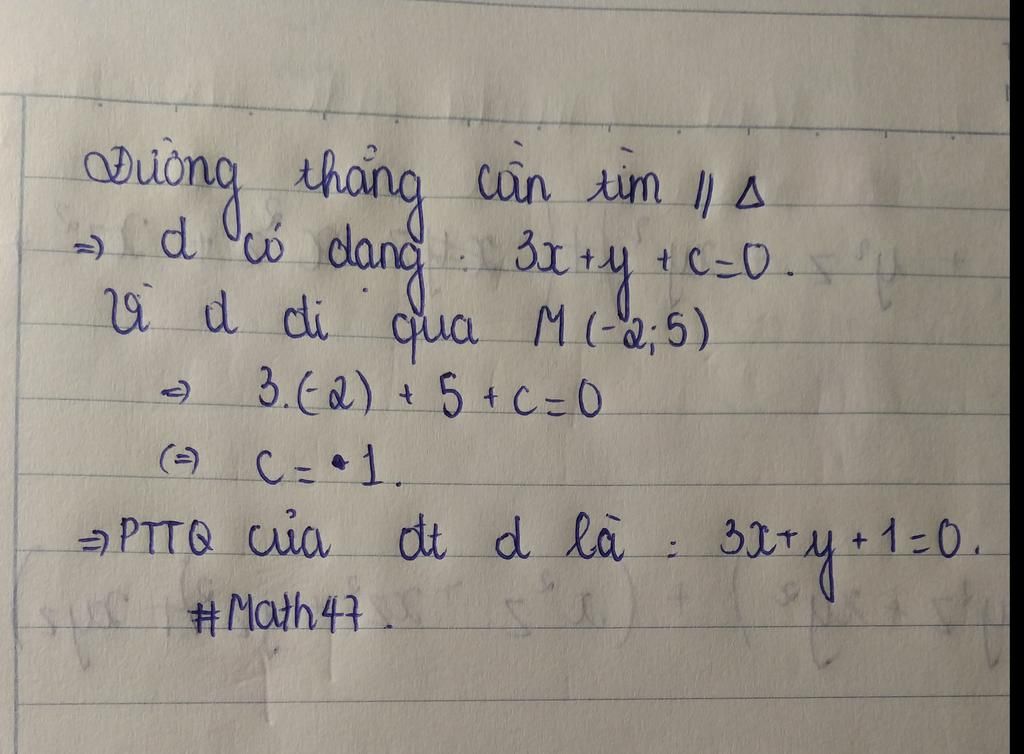 Đường thẳng cần tìm // Δ
=> d có dạng: 3x + y + c = 0.
Vì d đi qua M (-2; 5)
=> 3.(-2) + 5 + c = 0
(=) c = 1.
=> PTTQ của đt d là : 3x + y + 1 = 0.
#Math47.